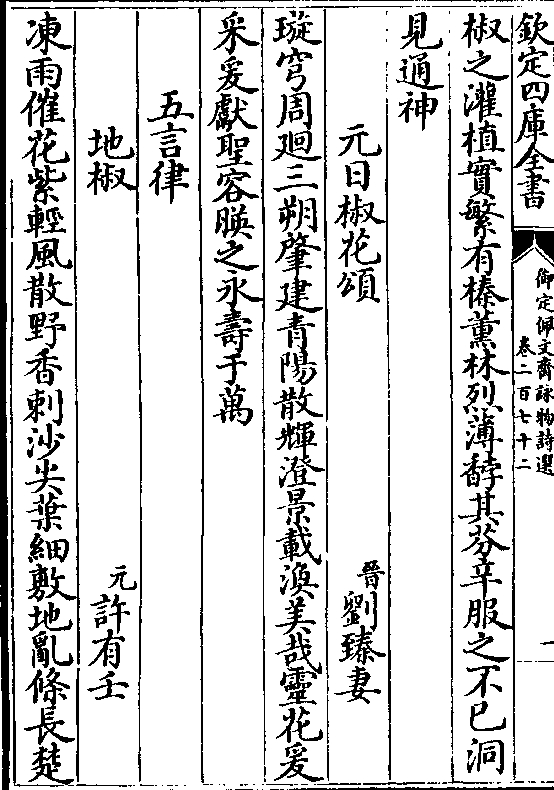 欽定四庫全書
御定佩文齋詠物詩選
卷二百七十二
一
椒之灌植實繁有榛薰林烈薄馞其芬辛服之不已洞
見通神
元日椒花頌
晉劉臻妻
璇穹周廻三朔肇建青陽散輝澄景載渙美哉靈花爰
采爰獻聖容暎之永壽于萬
五言律
地椒
元許有壬
凍雨催花紫輕風散野香刺沙尖葉細敷地亂條長楚